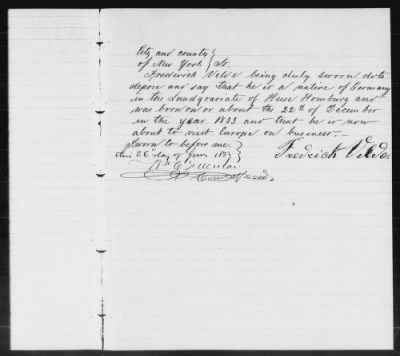 City and county }
of New York } Ss.
Frederick Velde being duly sworn doth
depose and say that he is a native of Germany
in the Landgraviate of Hesse Homburg and
was born on or about the 22th of December
in the year 1803 and that he is now
about to visit Europe on business.—
Sworn to before me. }
this 26 day of 185 } Fredrick Velde
of Deeds.